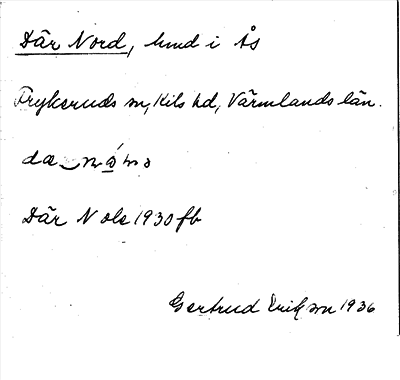 Där Nord, hmd i Ås
Frykeruds sn, Kils hd, Värmlands län.
Där Nole 1930 fb
Gertrud Erikson 1936